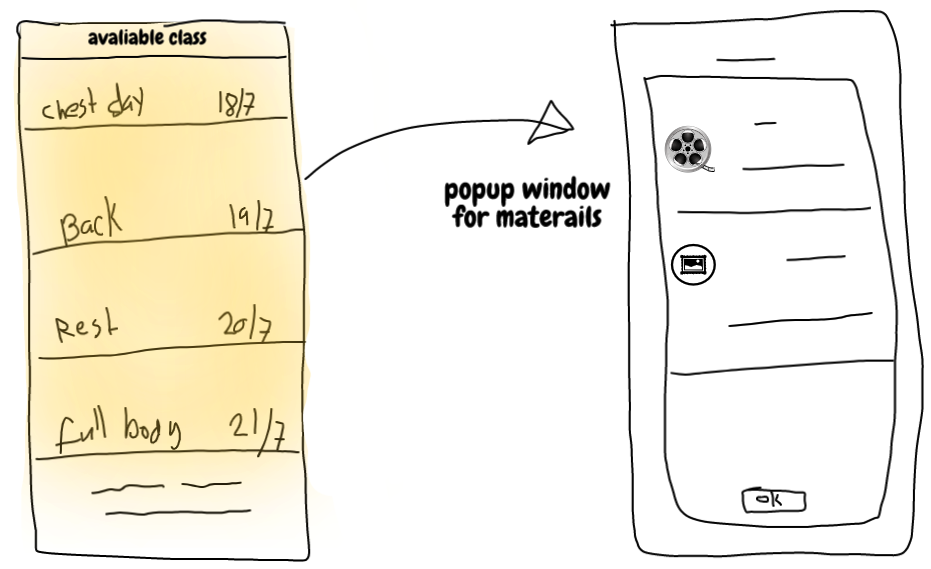 avaliable class
chest day 18/7
Back 19/7
Rest 20/7
full body 21/7
popup window
for materails
ok